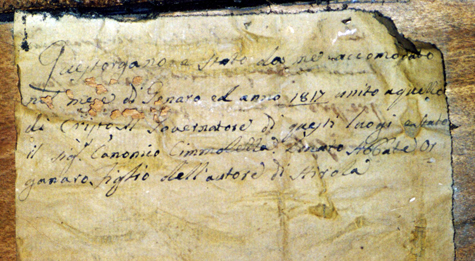 Quest organo è stato da me accomodato
nel mese di Genaro ed anno 1817 unito a quello
di Cristo il Governatore di questi luogi è stato
il sig.r Canonico Donato Abbate Or
ganaro figlio dell'autore di Airola